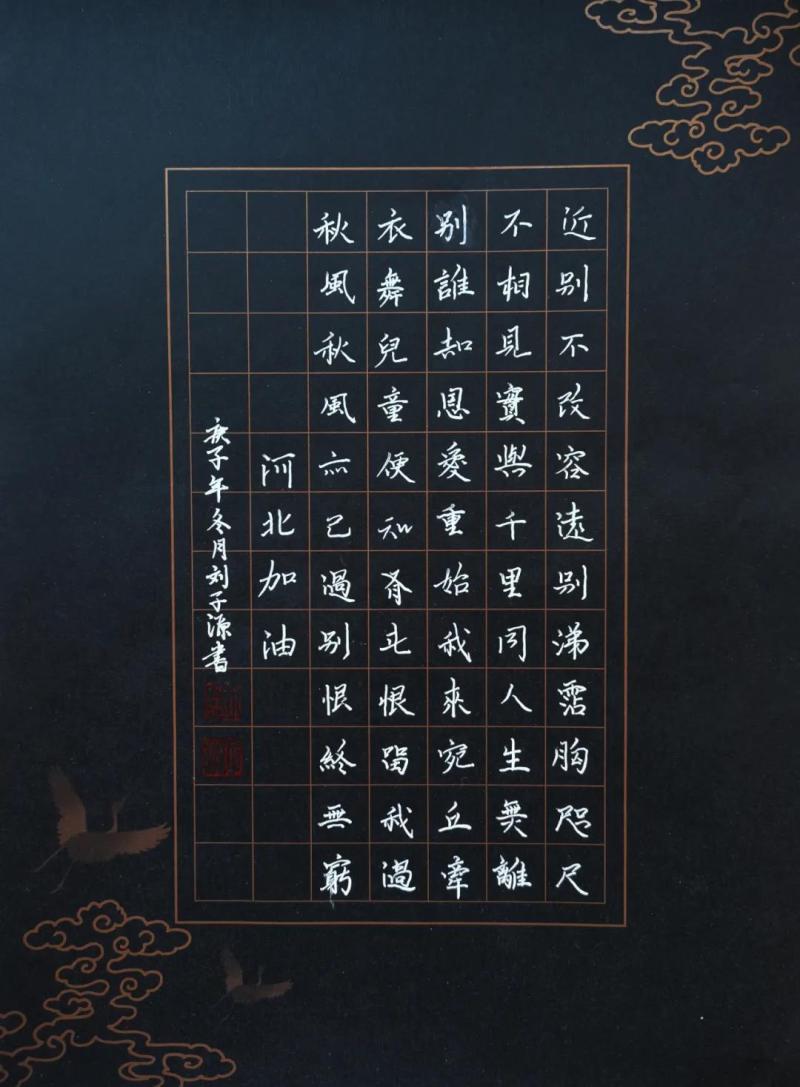 近别不改容遠别涕霑胸咫尺
不相見實與千里同人生無離
别誰知恩愛重始我來宛丘牽
衣舞兒童便知有此恨留我過
秋風秋風亦已過别恨終無窮
河北加油
庚子年冬月刘子源書